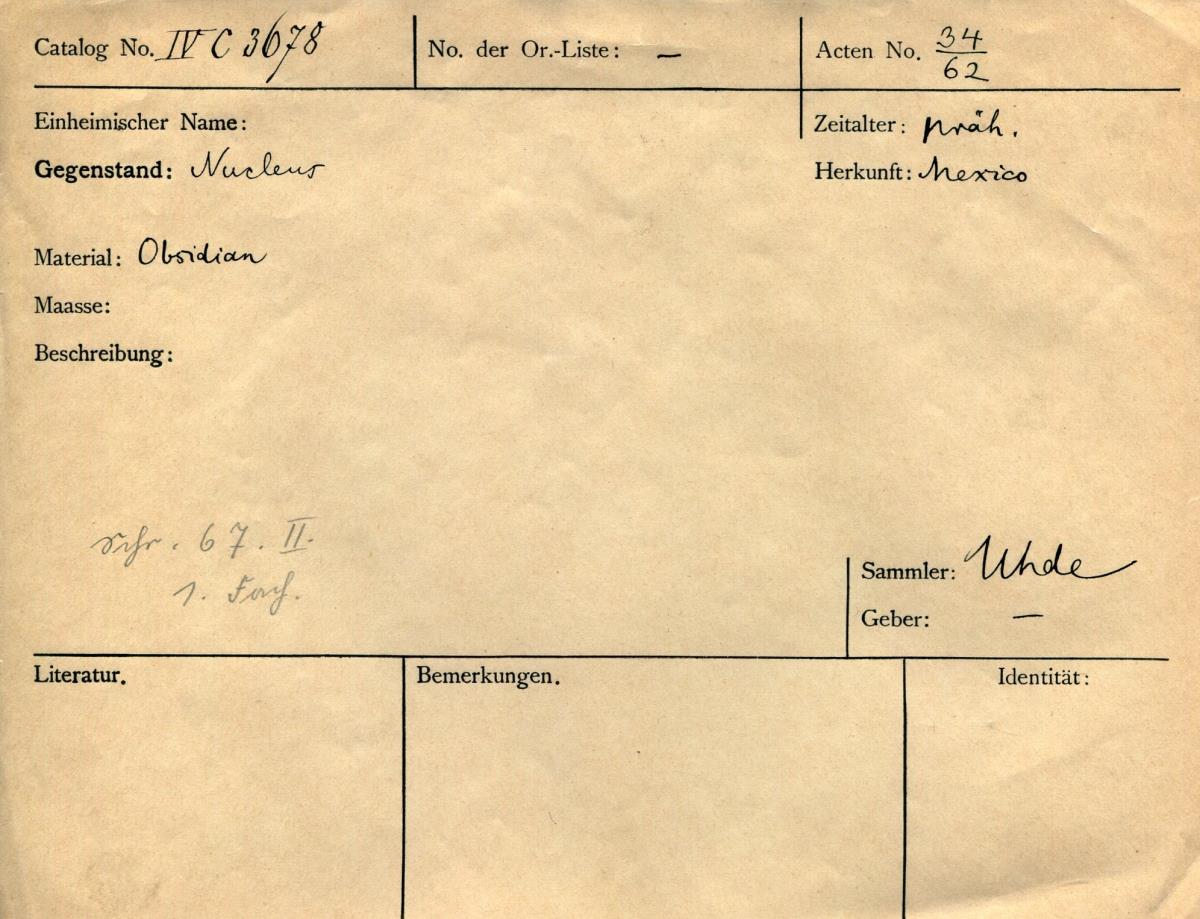 Catalog No. IV C 3678 No. der Or.-Liste: — Acten No. 34/62
Einheimischer Name: Zeitalter: präh.
Gegenstand: Nucleus Herkunft: Mexico
Material: Obsidian
Maasse:
Beschreibung:
Schr. 67. II.
1. Fach.
Sammler: Uhde
Geber: —
Literatur. Bemerkungen. Identität: